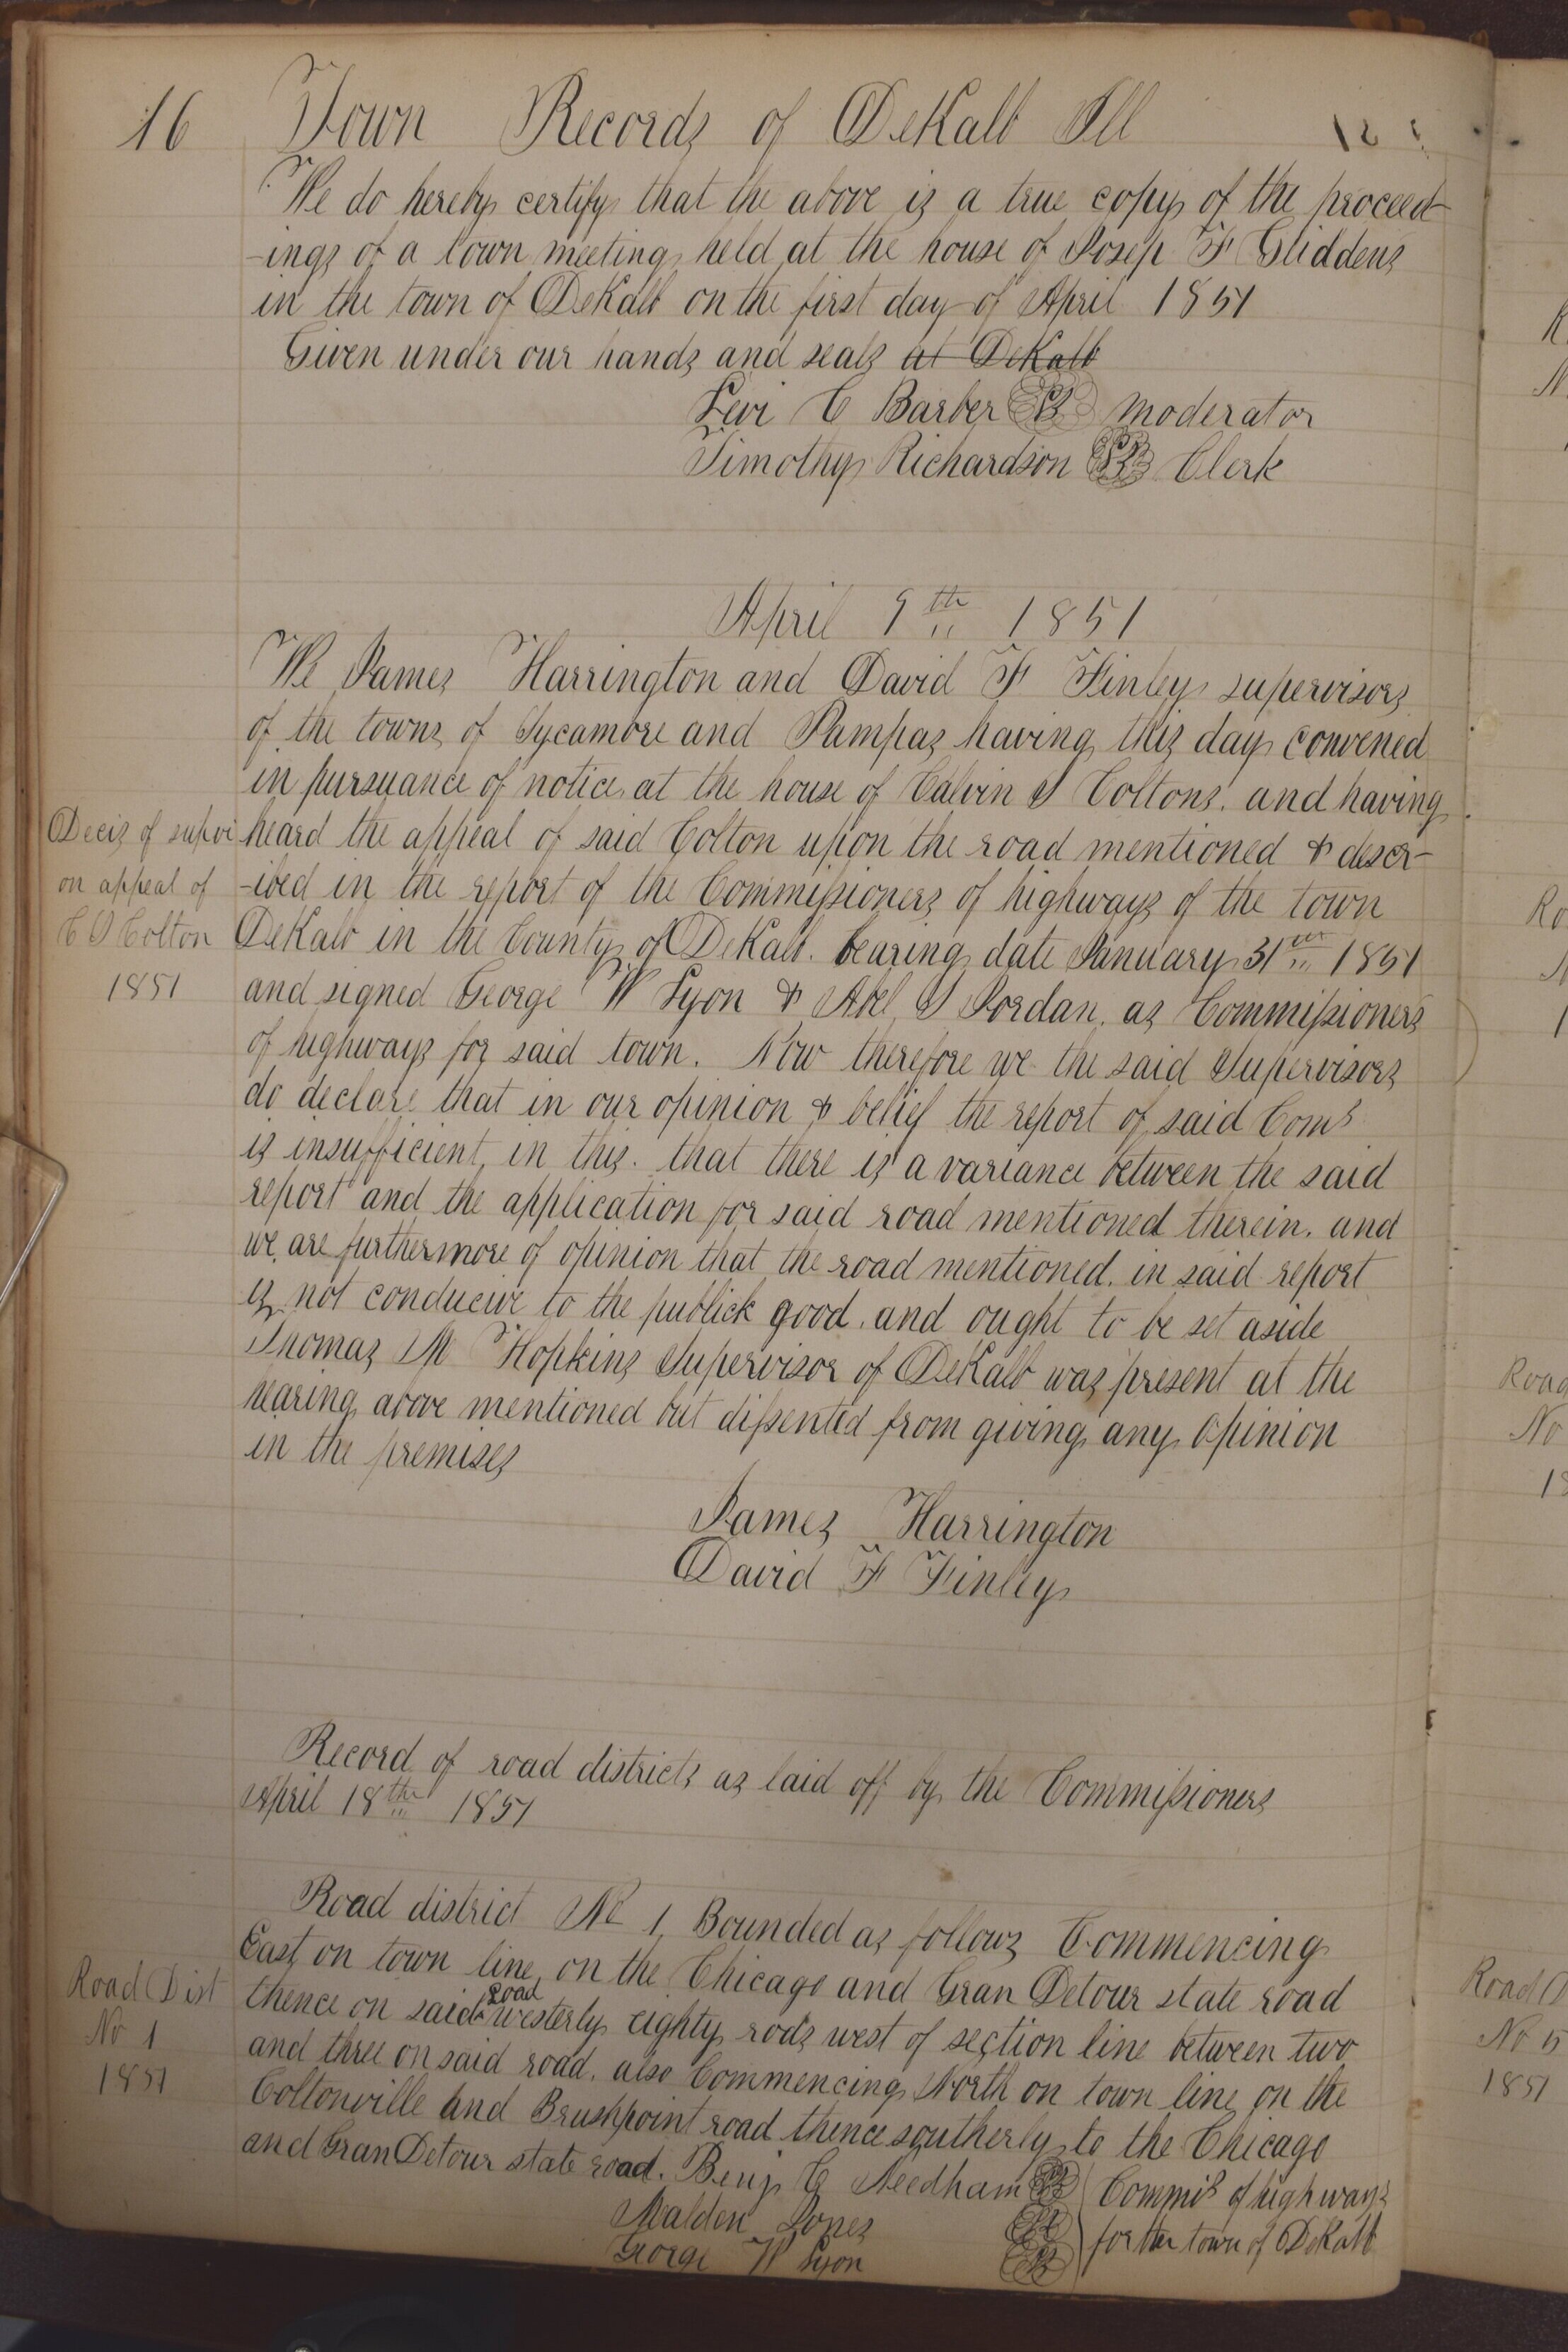 16 Town Records of DeKalb Ill
We do hereby certify that the above is a true copy of the proceed-
-ings of a town meeting held at the house of Josep F Gliddens
in the town of DeKalb on the first day of April 1851
Given under our hands and seals at DeKalb
Levi C Barber moderator
Timothy Richardson Clerk
April 9th 1851
We James Harrington and David F Finley supervisors
of the towns of Sycamore and Pampas having this day convened
in pursuance of notice at the house of Calvin S Coltons. and having
Decis of supvi
on appeal of
C S Colton
1851
heard the appeal of said Colton upon the road mentioned & descr-
-ibed in the report of the Commissioners of highways of the town
DeKalb in the County of DeKalb. bearing date January 31 1851
and signed George W Lyon & Abel S Jordan. as Commissioners
of highways for said town. Now therefore we the said Supervisors
do declare that in our opinion & belief the report of said Coms
is insufficient, in this. that there is a variance between the said
report and the application for said road mentioned therein. and
we are furthermore of opinion that the road mentioned. in said report
is not conducive to the publick good. and ought to be set aside
Thomas M Hopkins Supervisor of DeKalb was present at the
hearing above mentioned but dissented from giving any opinion
in the premises
James Harrington
David F Finley
Record of road districts as laid off by the Commissioners
April 18th 1851
Road Dist
No 1
1851
Road district No 1, Bounded as follows Commencing
East on town line, on the Chicago and Gran Detour state road
thence on said road westerly eighty rods west of section line between two
and three on said road. also Commencing North on town line on the
Coltonville and Brushpoint road thence southerly to the Chicago
and Gran Detour state road. Benj G Needham Commis of highways
Maldon Jones for the town of DeKalb
George W Lyon
Road
No
Road
No 5
1851